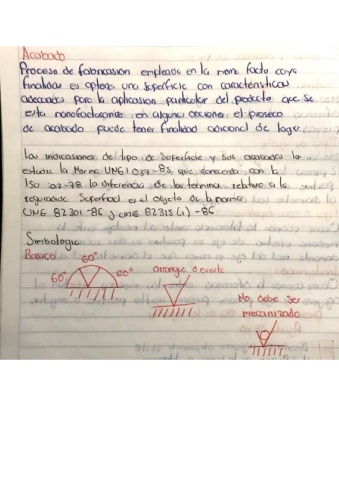 Acabado
Proceso de fabricasion empleado en la manofacto cuya
finalidad es optener una superficie con caracteristicas
adecuadas para la aplicasion particular del producto que se
esta manofacturando en algunas occiones el proseco
de acabado puede tener finalidad adicional de lograr
Las indicasiones del tipo de superficie y sus acabados la
estudia la Norma UNE 1 037-83, que concuerda con la
ISO 02-78 la diferencia de los terminos relativos a la
regurosidad Superficial es el objeto de la norma
UNE 82301-86 y UNE 82315(1)-86
Simbologia
Basico
60°
60°
60°
arranque de viruta
No debe ser
mecanizado